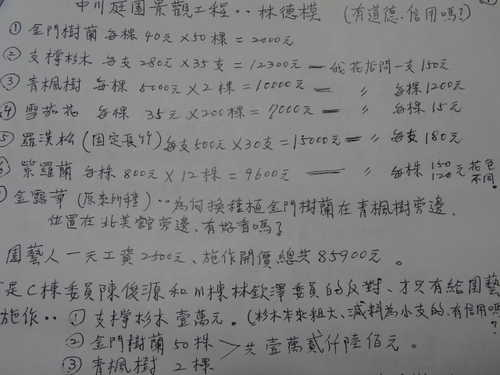 中川庭園景觀工程‥林德模 (有道德.信用嗎?)
① 金門樹蘭 每棵 40元×50棵=2000元
② 支撐杉木 每支 280元×35支=12300元 — 我花店問一支150元
③ 青楓樹 每棵 5000元×2棵=10000元 — 〃 每棵1200元
④ 雪茄花 每棵 35元×200棵=7000元 — 〃 每棵15元
⑤ 羅漢松(固定長竹)每支500元×30支=15000元 — 〃 每支180元
紫羅蘭 每棵 800元×12棵=9600元 — 〃 每棵 150 120元 花色不同
金露華(原來所種)‥為何換種植金門樹蘭在青楓樹旁邊.
位置在北美館旁邊.有好看嗎?
園藝人一天工資2500元、施作開價總共85900元。
是C棟委員陳俊源和M棟林欽澤委員的反對、才只有給園藝
施作‥ ① 支撐杉木 壹萬元。(杉木本來粗大、減料為小支的.有信用嗎?
② 金門樹蘭 50棵 > 共壹萬貳仟陸佰元。
③ 青楓樹 2棵